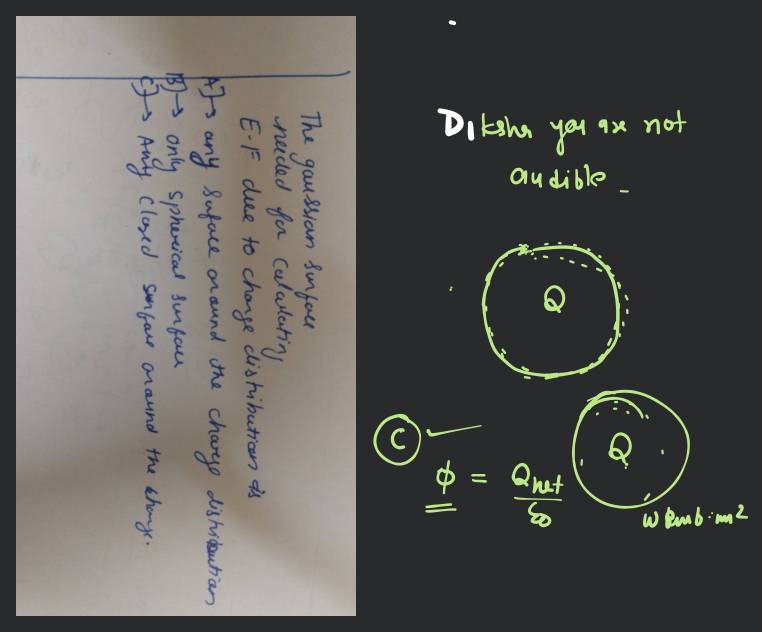 The gaussian surface
needed for calculating
E.F due to charge distribution is
A] → any surface around the charge distribution
B] → only spherical surface
C] → Any closed surface around the charge.
Diksha you are not
audible
Q
C
Q
ϕ = Qnet/ε0